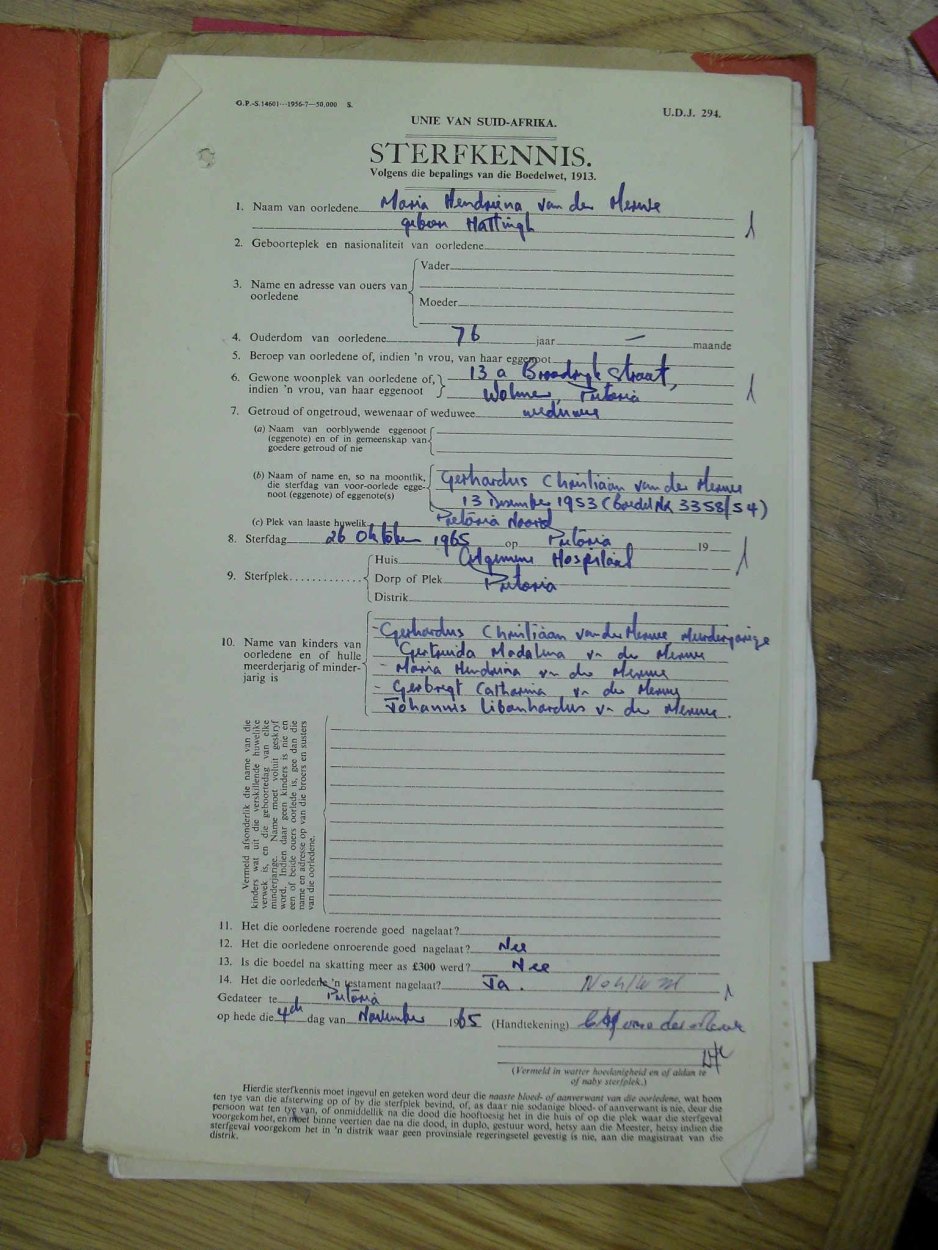 G.P.-S.14601—1956-7—50,000 S.
U.D.J. 294.
UNIE VAN SUID-AFRIKA.
STERFKENNIS.
Volgens die bepalings van die Boedelwet, 1913.
1. Naam van oorledene Maria Hendriena van der Merwe
gebore Hattingh
2. Geboorteplek en nasionaliteit van oorledene
3. Name en adresse van ouers van oorledene
Vader
Moeder
4. Ouderdom van oorledene 76 jaar — maande
5. Beroep van oorledene of, indien 'n vrou, van haar eggenoot
6. Gewone woonplek van oorledene of, indien 'n vrou, van haar eggenoot
13 a Broodryk straat,
Wolmer, Pretoria
7. Getroud of ongetroud, wewenaar of weduwee weduwee
(a) Naam van oorblywende eggenoot
(eggenote) en of in gemeenskap van
goedere getroud of nie
(b) Naam of name en, so na moontlik,
die sterfdag van voor-oorlede egge-
noot (eggenote) of eggenote(s)
Gerhardus Christiaan van der Merwe
13 Desember 1953 (Boedel No. 3358/54)
(c) Plek van laaste huwelik Pretoria Noord
8. Sterfdag 26 Oktober 1965 op Pretoria 19
9. Sterfplek
Huis Algemene Hospitaal
Dorp of Plek Pretoria
Distrik
10. Name van kinders van
oorledene en of hulle
meerderjarig of minder-
jarig is
- Gerhardus Christiaan van der Merwe Meerderjarige
Gertruida Madalena v. der Merwe
- Maria Hendrina v. der Merwe
- Gerbregt Catharina v. der Merwe
Johannis Libenhardus v. der Merwe.
Vermeld afsonderlik die name van die
kinders wat uit die verskillende huwelike
verwek is, en die geboortedag van elke
minderjarige. Name moet voluit geskryf
word. Indien daar geen kinders is nie en
een of beide ouers oorlede is, gee dan die
name en adresse op van die broers en susters
van die oorledene.
11. Het die oorledene roerende goed nagelaat?
12. Het die oorledene onroerende goed nagelaat? Nee
13. Is die boedel na skatting meer as £300 werd? Nee
14. Het die oorledene 'n testament nagelaat? Ja.
Gedateer te Pretoria
op hede die 4de dag van November 1965 (Handtekening) van der Merwe
(Vermeld in watter hoedanigheid en of aldan te
of naby sterfplek.)
Hierdie sterfkennis moet ingevul en geteken word deur die naaste bloed- of aanverwant van die oorledene, wat hom
ten tye van die afsterwing op of by die sterfplek bevind, of, as daar nie sodanige bloed- of aanverwant is nie, deur die
persoon wat ten tye van, of onmiddellik na die dood die hooftoesig het in die huis of op die plek waar die sterfgeval
voorgekom het, en moet binne veertien dae na die dood, in duplo, gestuur word, hetsy aan die Meester, hetsy indien die
sterfgeval voorgekom het in 'n distrik waar geen provinsiale regeringsetel gevestig is nie, aan die magistraat van die
distrik.